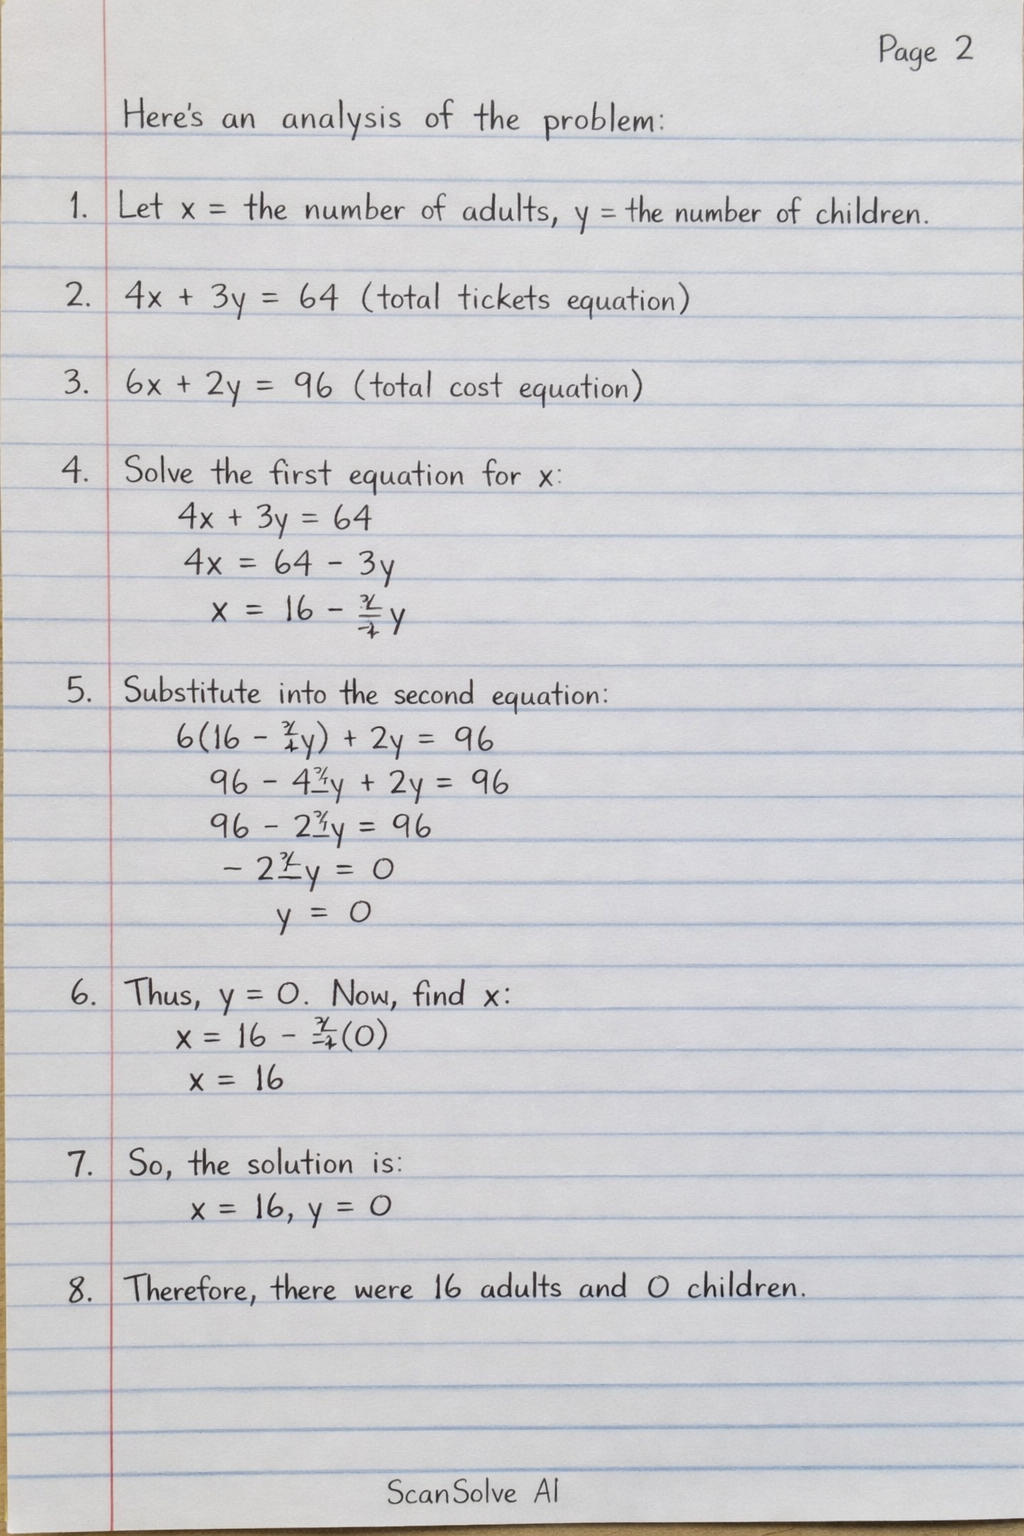 Page 2
Here's an analysis of the problem:
1. Let x = the number of adults, y = the number of children.
2. 4x + 3y = 64 (total tickets equation)
3. 6x + 2y = 96 (total cost equation)
4. Solve the first equation for x:
4x + 3y = 64
4x = 64 - 3y
x = 16 - y
5. Substitute into the second equation:
6(16 - y) + 2y = 96
96 - 4 y + 2y = 96
96 - 2 y = 96
- 2 y = 0
y = 0
6. Thus, y = 0. Now, find x:
x = 16 - (0)
x = 16
7. So, the solution is:
x = 16, y = 0
8. Therefore, there were 16 adults and 0 children.
ScanSolve AI